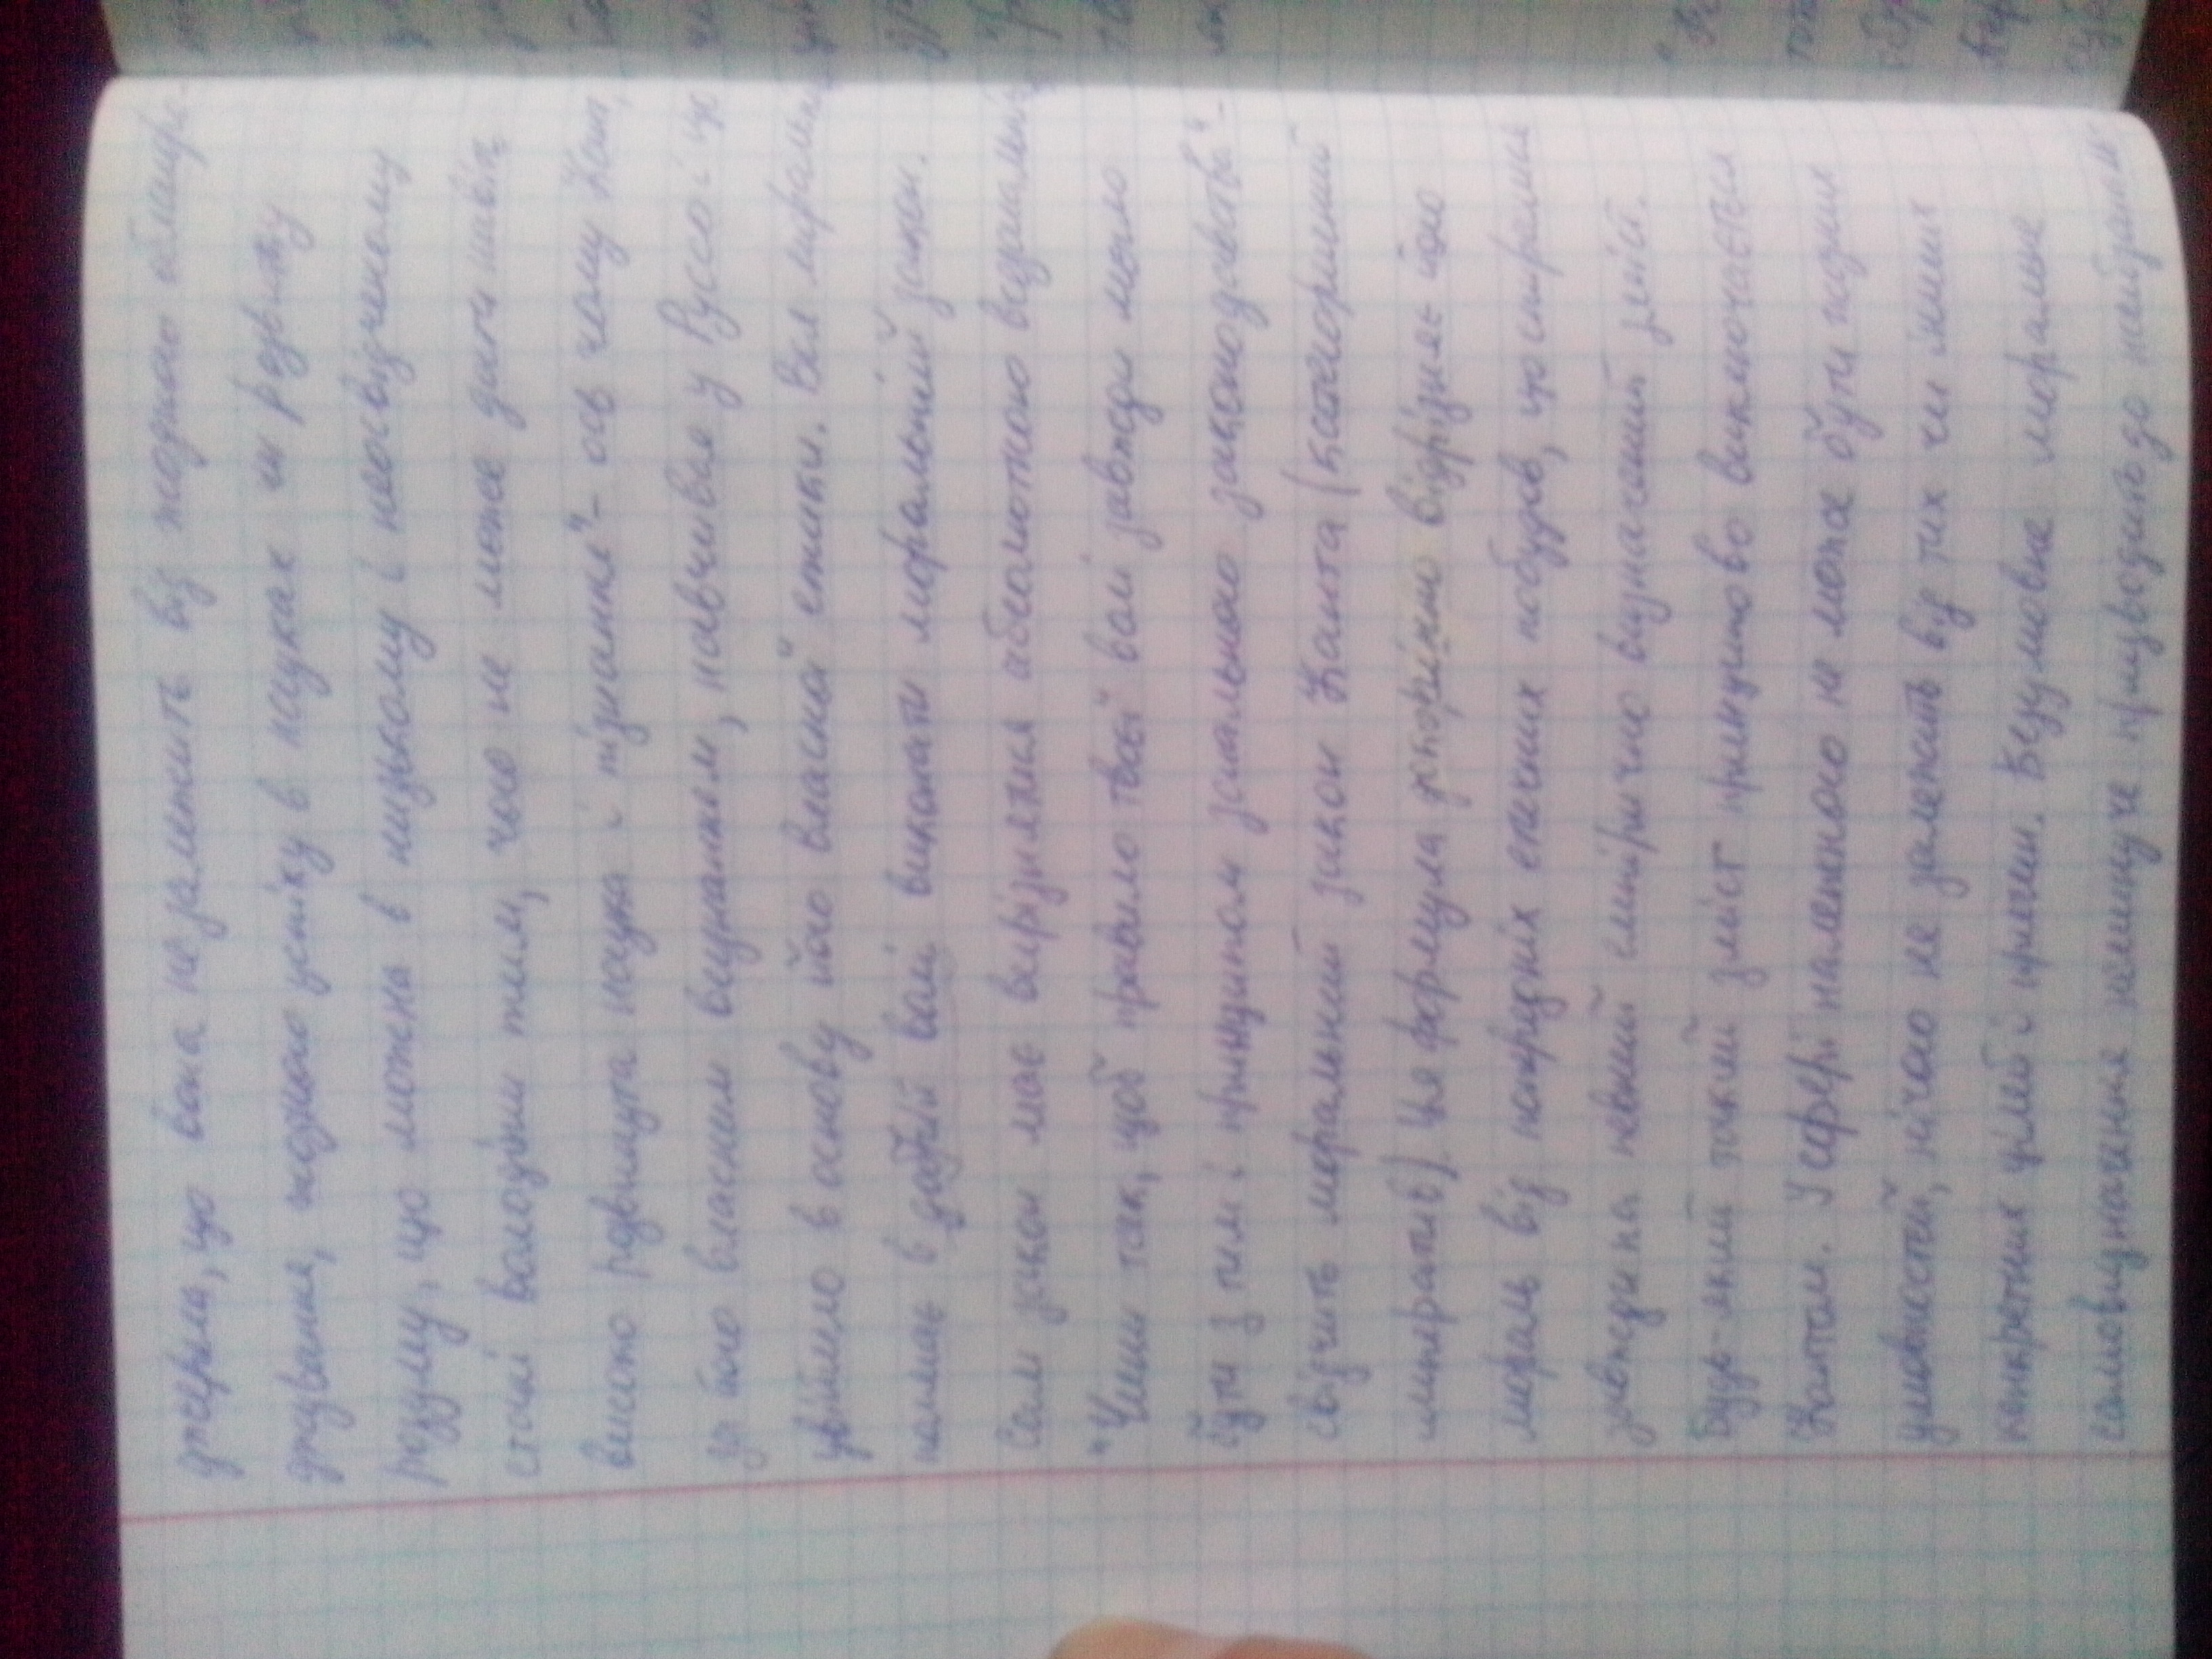 джерела, що вона не залежить від жодного
джування, жодного успіху в науках чи розвитку
розуму, що можна в низькому і неосвідченому
стані володіти тим, чого не може дати навіть
високо розвинута наука і пізнання"- ось чому Кант,
за його власним визнанням, навчився у Руссо і що
увійшло в основу його власної етики. Вся моральність
полягає в добрій волі виконати моральний закон.
Сам закон має вирізнятися абсолютною
"Чини так, щоб правило твоєї волі завжди могло
бути з тим і принципом загального законодавства"-
свідчить моральний закон Канта (категоричний
імператив). Ця формула докорінно відрізняє його
мораль від попередніх етичних побудов, що спиралися
завжди на певний емпірично визначений зміст.
Будь-який такий зміст принципово виключається
Кантом. У сфері належного не може бути жодних
умовностей, нічого не залежить від тих чи інших
конкретних цілей і причин. Безумовне моральне
самовизначення неминуче призводить до